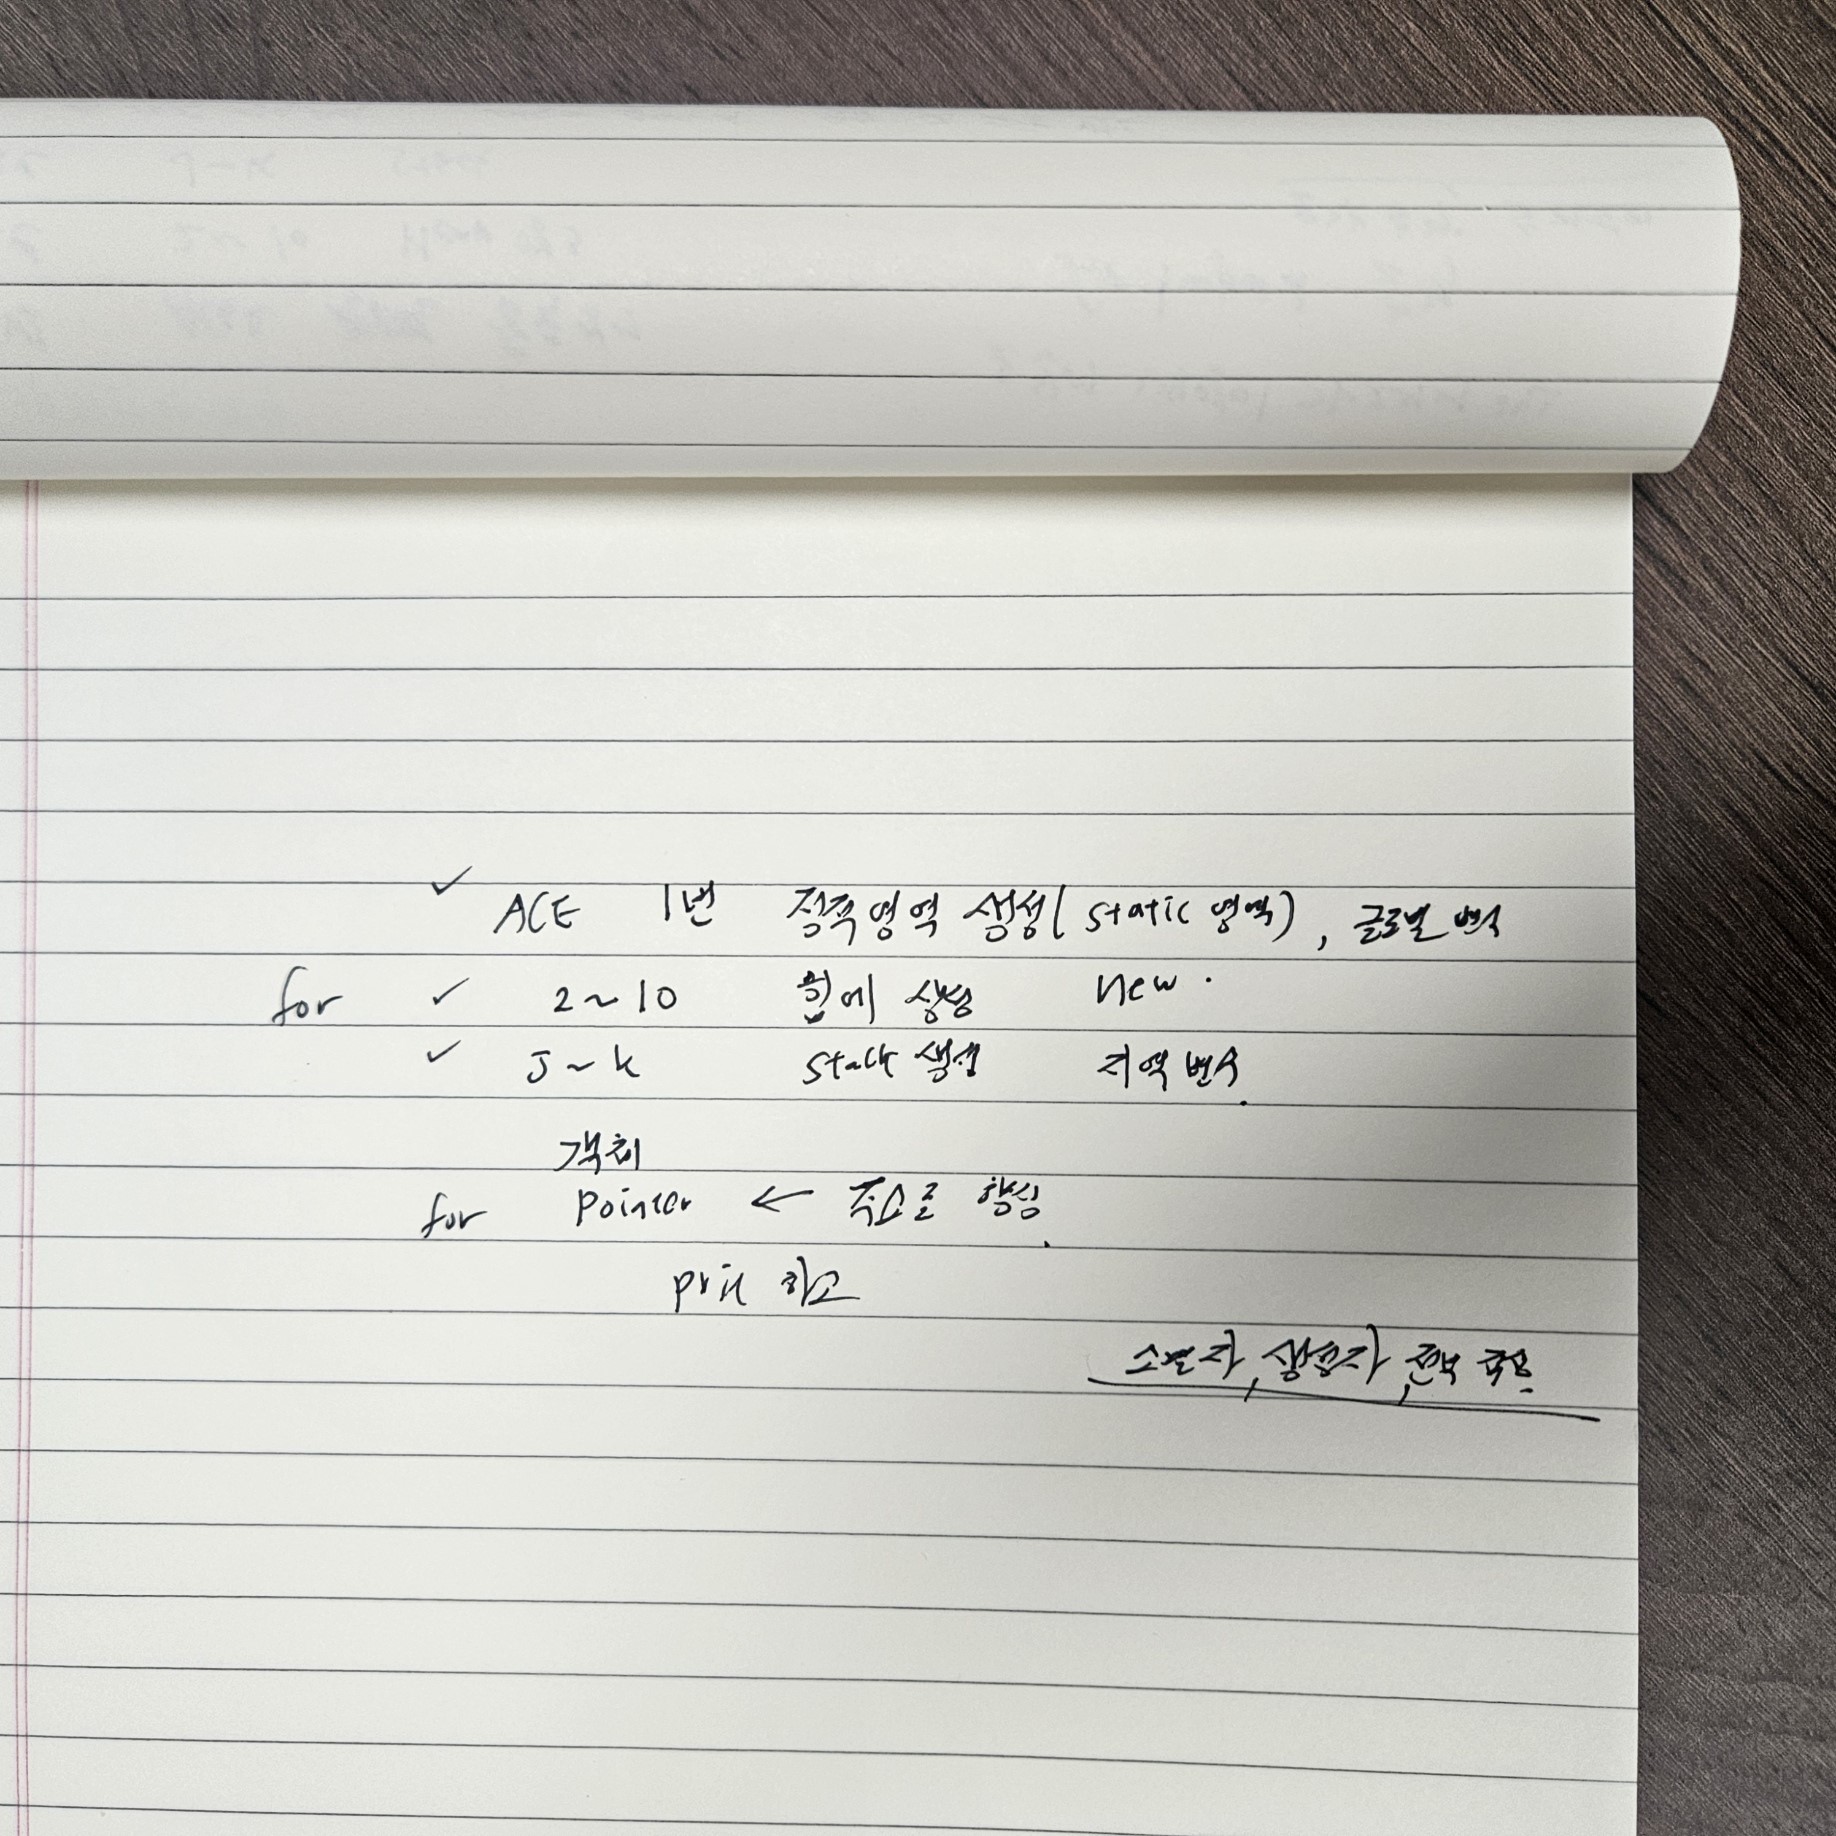 ACE 1번 정적영역 생성(static 영역), 글로벌 변수
for 2~10 힙에 생성 new.
J~k stack 생성 지역 변수.
객체
for Pointer ← 주소로 형성.
print 하고
소멸자, 생성자,